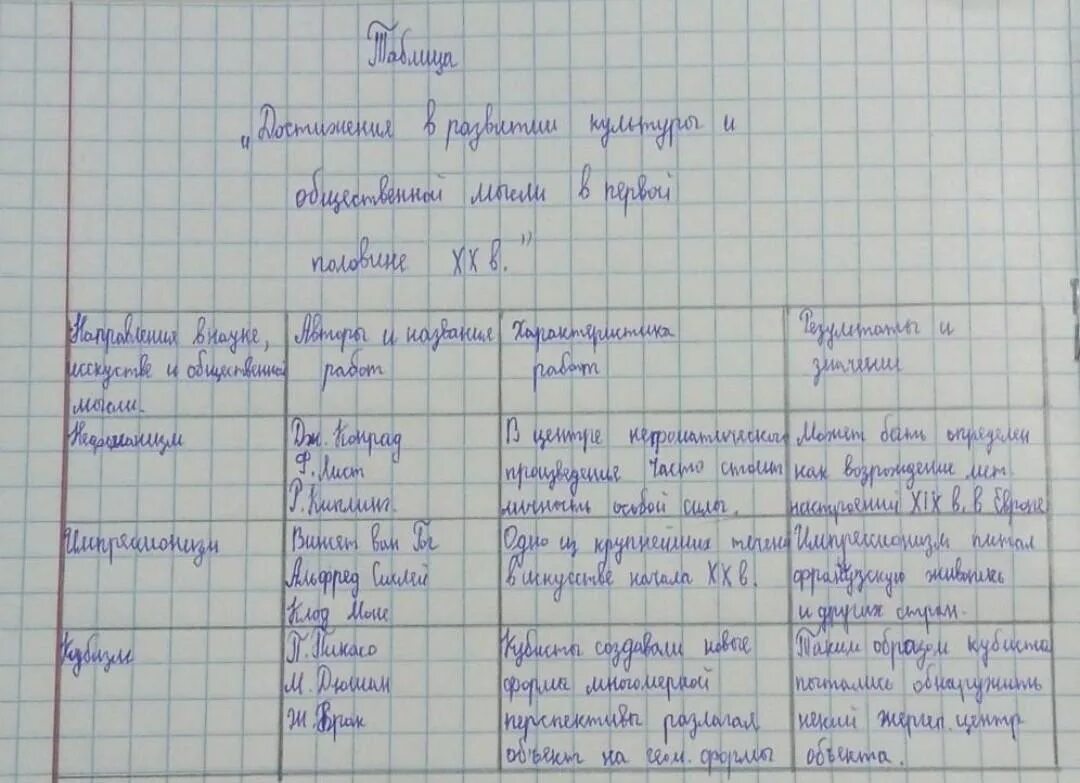 Таблица
„Достижения в развитии культуры и
общественной мысли в первой
половине XX в.”
Направления в науке,
исскустве и общественной
мысли.
Авторы и названия
работ
Характеристика
работ
Результаты и
значении
Неоромонизм
Дж. Конрад
Ф. Лист
Р. Киплинг.
В центре
произведения часто стоит
личность особой силы.
Может быть определен
как возрождение мист.
настроений XIX в. в Европе
Импрессионизм
Винсет ван Гог
Альфред Сислей
Клод Моне
Одно из крупнейших течений
в искусстве начала XX в.
Импрессионизм питал
французскую живопись
и других стран.
Кубизм
П. Пикасо
М. Дюшан
Ж. Брак
Кубисты создавали новые
форма многомерной
перспективы разлагал
объект на геом. формы
Таким образом кубисты
пытались обнаружить
некий центр
объекта.